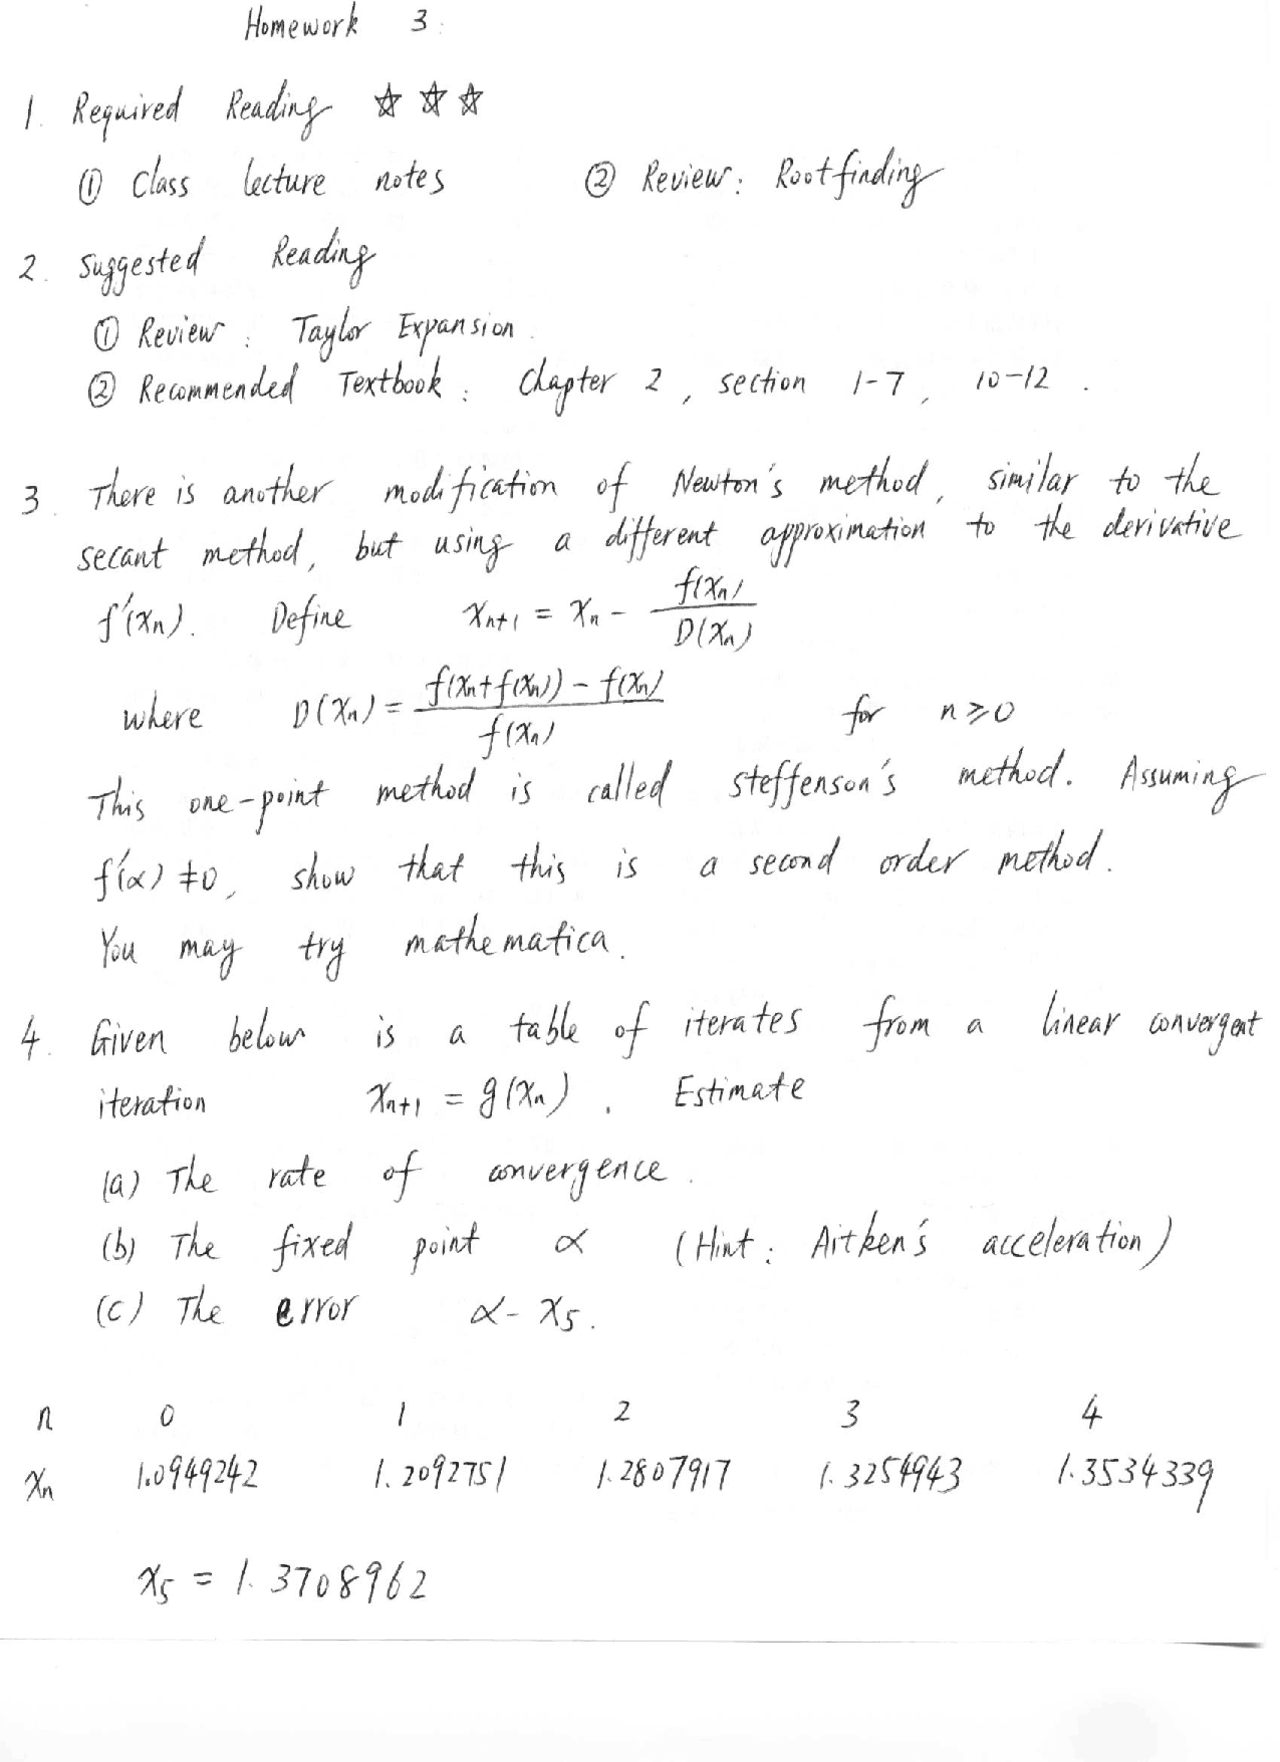 Homework 3.
1. Required Reading ☆ ☆ ☆
① Class lecture notes ② Review: Rootfinding
2. Suggested Reading
① Review: Taylor Expansion.
② Recommended Textbook: Chapter 2, section 1-7, 10-12.
3. There is another modification of Newton's method, similar to the
secant method, but using a different approximation to the derivative
f'(xn). Define xn+1 = xn - f(xn) / D(xn)
where D(xn) = f(xn+f(xn)) - f(xn) / f(xn) for n ⩾ 0
This one-point method is called steffenson's method. Assuming
f'(α) ≠ 0, show that this is a second order method.
You may try mathematica.
4. Given below is a table of iterates from a linear convergent
iteration xn+1 = g(xn). Estimate
(a) The rate of convergence.
(b) The fixed point α (Hint: Aitken's acceleration)
(c) The error α - x5.
n 0 1 2 3 4
xn 1.0949242 1.2092751 1.2807917 1.3254943 1.3534339
x5 = 1.3708962